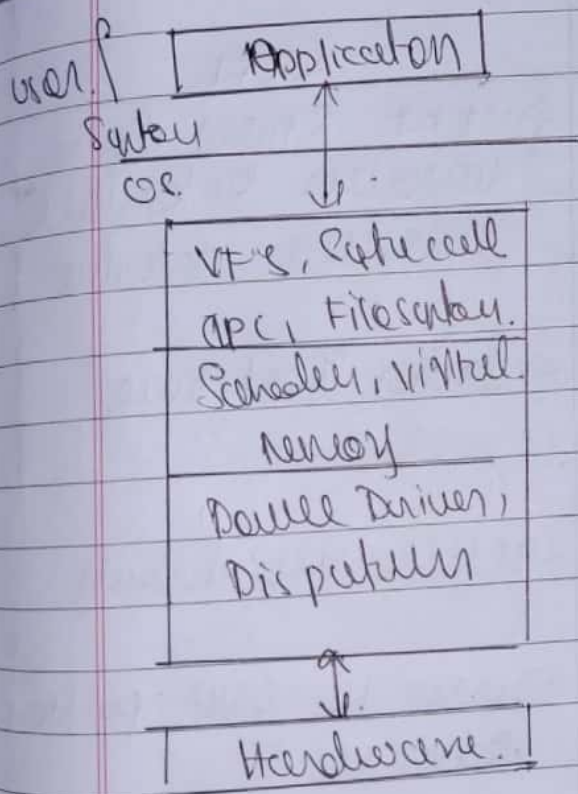 user
Application
System
OS.
VFS, System call
IPC, File system.
Scheduler, virtual
memory
Device Driver,
Dispatcher
Hardware.